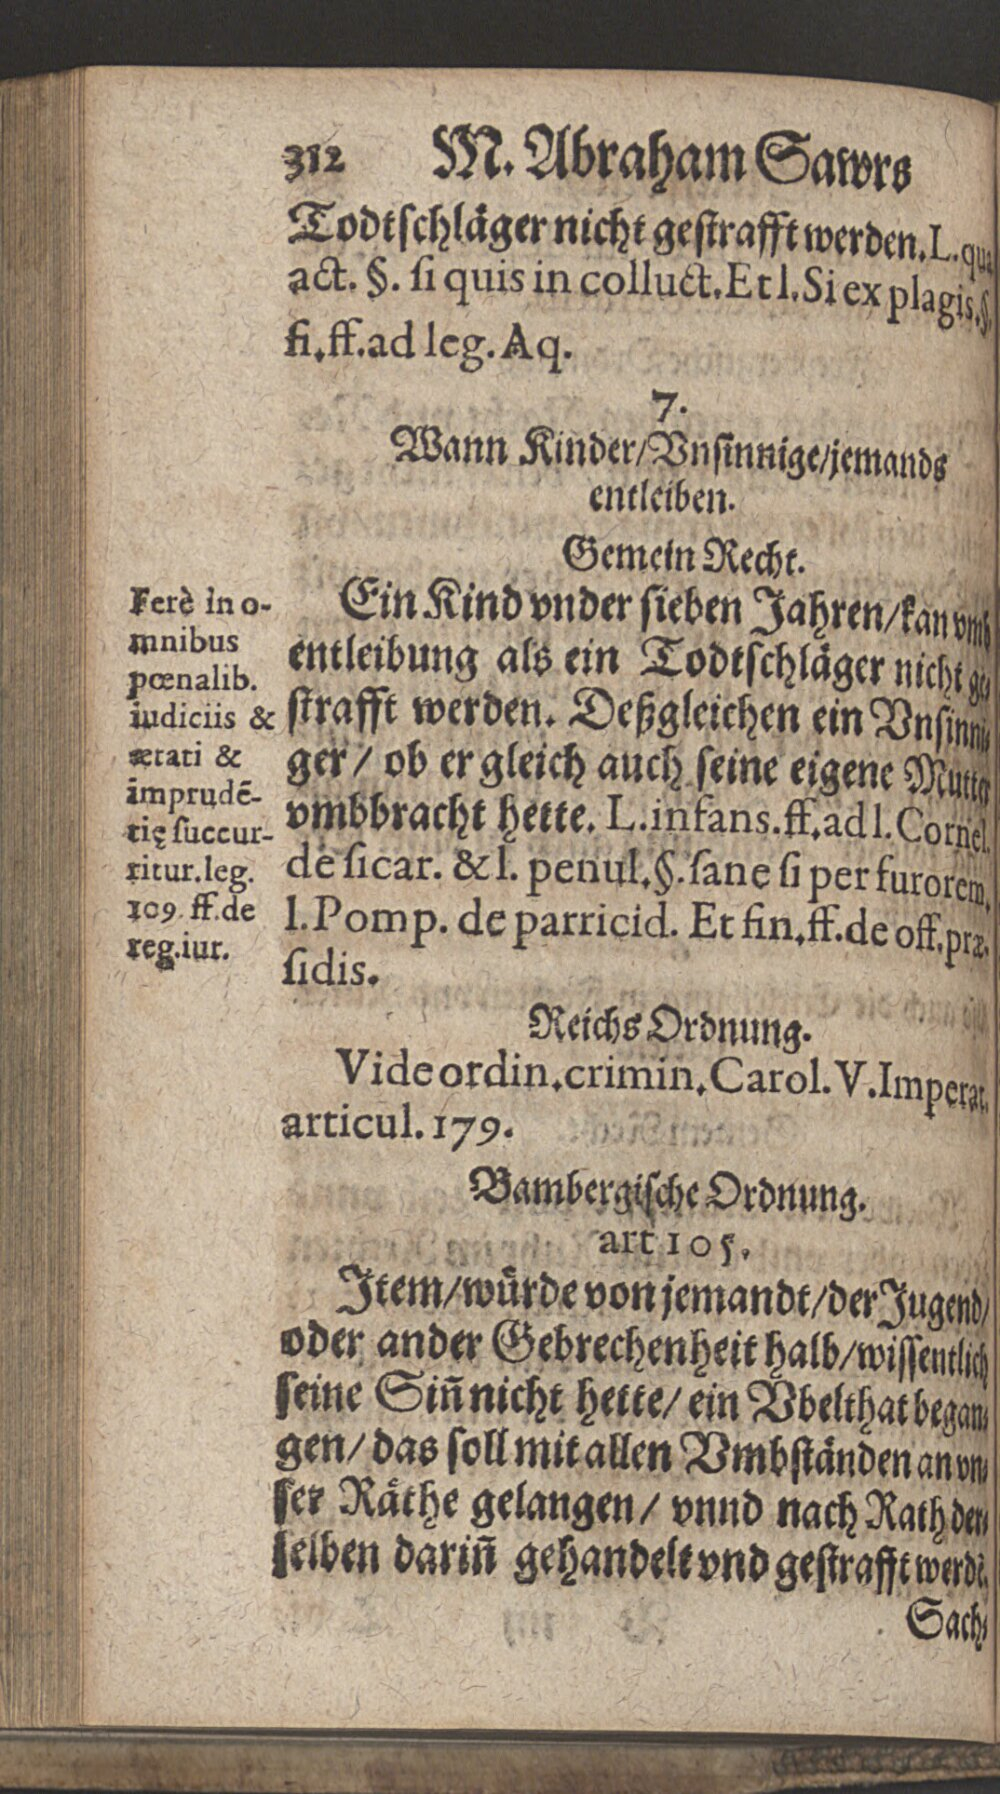 312 M. Abraham Sawrs
Todtschläger nicht gestrafft werden. L. qua
act. §. si quis in colluct. Et l. Si ex plagis. §.
fi. ff. ad leg. Aq.
7.
Wann Kinder/ Vnsinnige/ jemands
entleiben.
Gemein Recht.
Ein Kind vnder sieben Jahren/ kan vmb
entleibung als ein Todtschläger nicht ge-
strafft werden. Deßgleichen ein Vnsinni-
ger/ ob er gleich auch seine eigene Mutter
vmbbracht hette. L. infans. ff. ad l. Cornel.
de sicar. & l. penul. §. sane si per furorem.
l. Pomp. de parricid. Et fin. ff. de off. præ-
sidis.
Ferè in o-
mnibus
pœnalib.
iudiciis &
ætati &
imprudē-
tię succur-
ritur. leg.
109. ff. de
reg. iur.
Reichs Ordnung.
Vide ordin. crimin. Carol. V. Imperat.
articul. 179.
Bambergische Ordnung.
art 105.
Item/ würde von jemandt/ der Jugend/
oder ander Gebrechenheit halb/ wissentlich
seine Sin̄ nicht hette/ ein Vbelthat began-
gen/ das soll mit allen Vmbständen an vn-
ser Räthe gelangen/ vnnd nach Rath der-
selben darin̄ gehandelt vnd gestrafft werdē.
Sach-